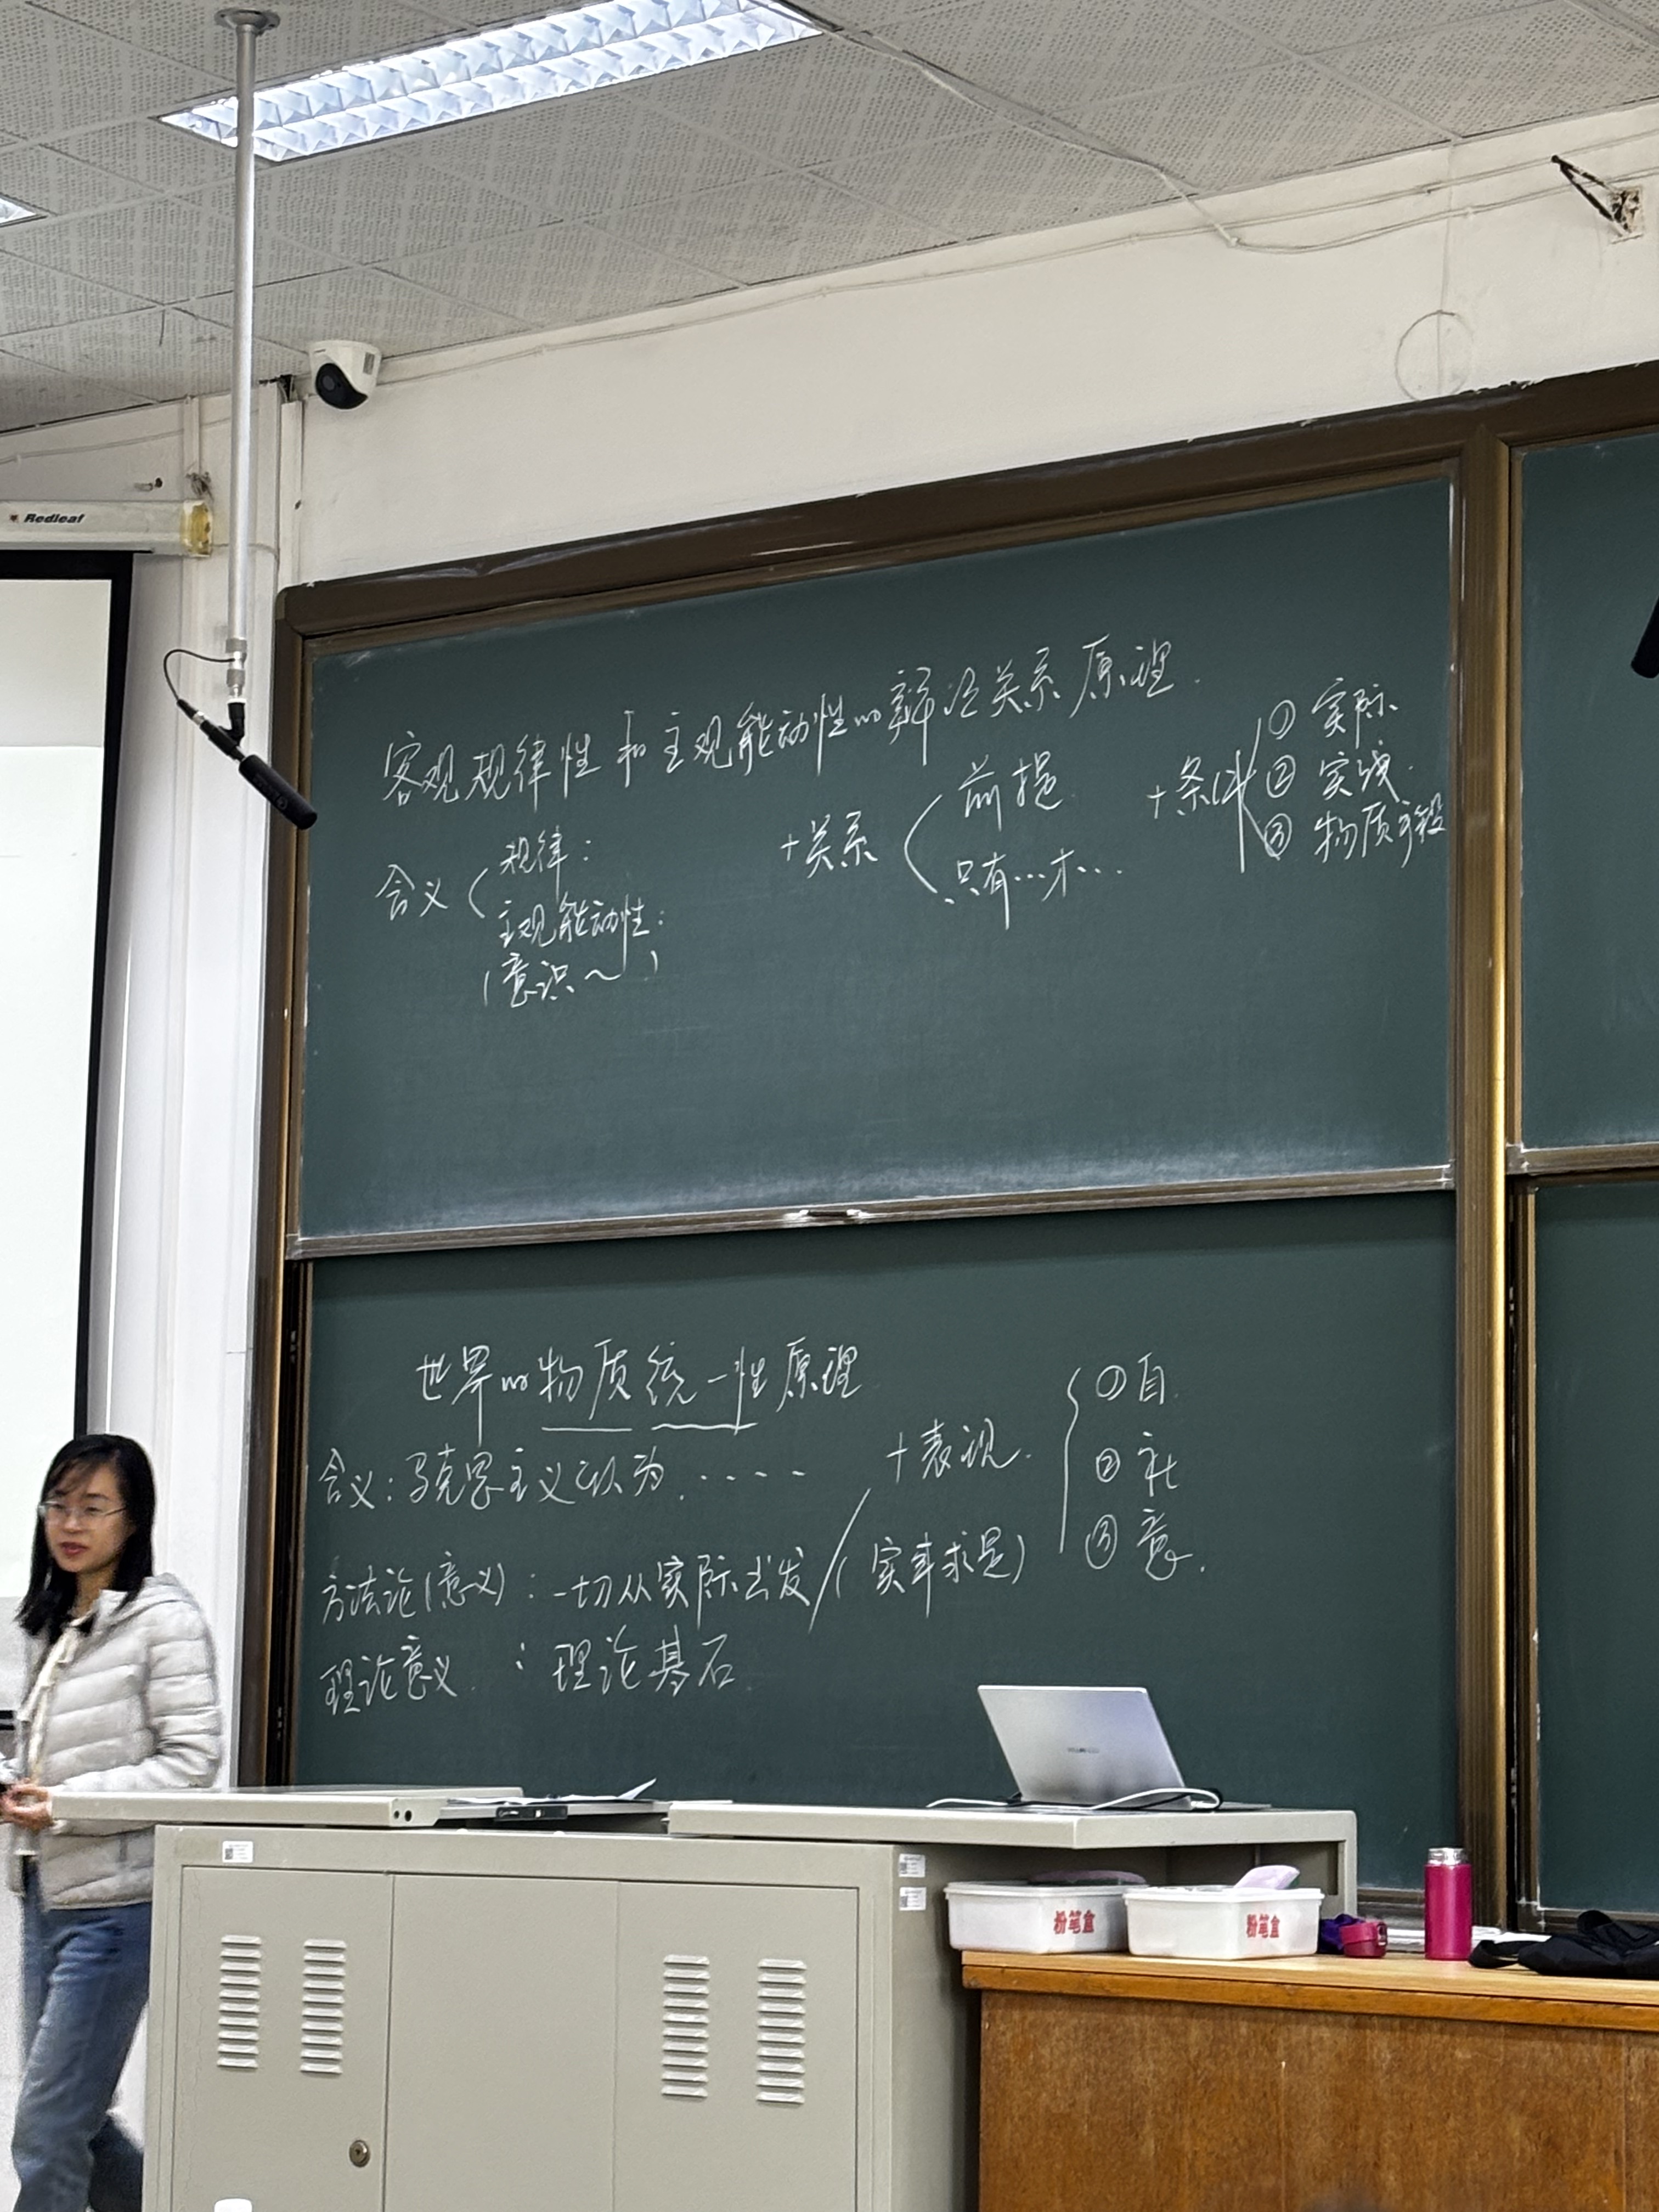 Redleaf
客观规律性和主观能动性的辩证关系原理.
含义
规律:
主观能动性:
(意识~)
+关系
前提
只有…才…
+条件
① 实际.
② 实践.
③ 物质手段
世界的物质统一性原理
含义:马克思主义认为.····
+表现.
① 自.
② 社
③ 意.
方法论(意义):一切从实际出发/(实事求是)
理论意义:理论基石
粉笔盒
粉笔盒